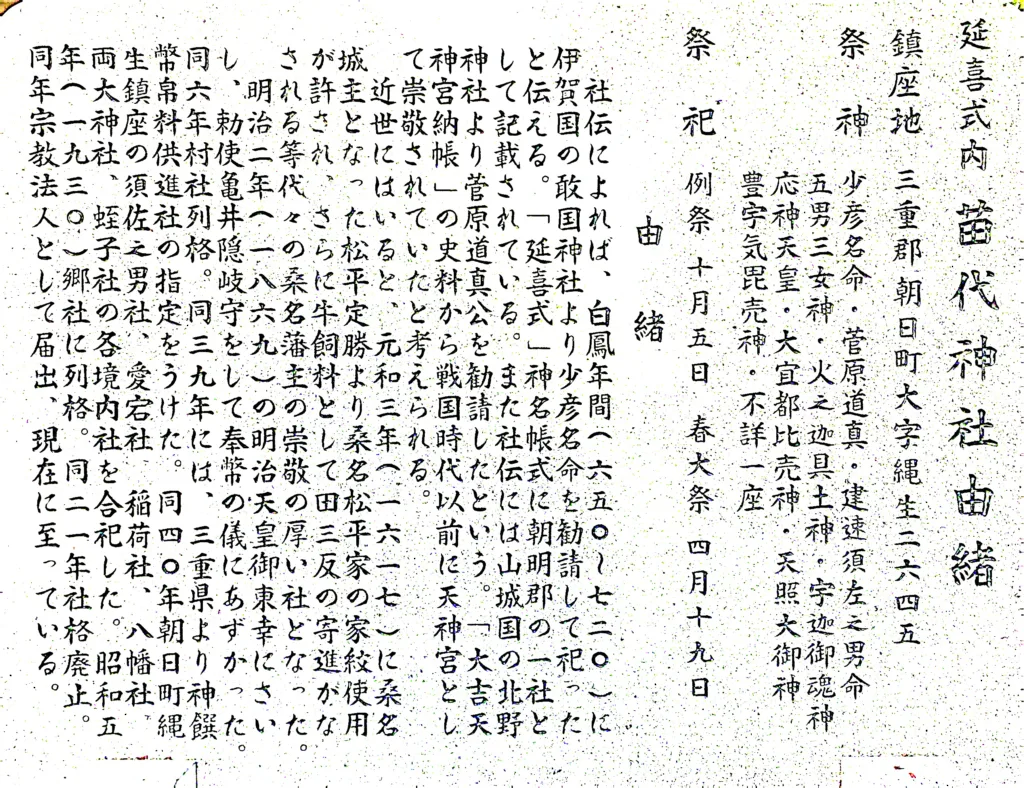 延喜式内 苗代神社由緒
鎮座地 三重郡朝日町大字縄生二六四五
祭神 少彦名命・菅原道真・建速須左之男命
五男三女神・火之迦具土神・宇迦御魂神
応神天皇・大宜都比売神・天照大御神
豊宇気毘売神・不詳一座
祭祀 例祭 十月五日 春大祭 四月十九日
由緒
社伝によれば、白鳳年間(六五〇~七二〇)に
伊賀国の敢国神社より少彦名命を勧請して祀った
と伝える。「延喜式」神名帳式に朝明郡の一社と
して記載されている。また社伝には山城国の北野
神社より菅原道真公を勧請したという。「大吉天
神宮納帳」の史料から戦国時代以前に天神宮とし
て崇敬されていたと考えられる。
近世にはいると、元和三年(一六一七)に桑名
城主となった松平定勝より桑名松平家の家紋使用
が許され、さらに牛飼料として田三反の寄進がな
される等代々の桑名藩主の崇敬の厚い社となった。
明治二年(一八六九)の明治天皇御東幸にさい
し、勅使亀井隠岐守をして奉幣の儀にあずかった。
同六年村社列格。同三九年には、三重県より神饌
幣帛料供進社の指定をうけた。同四〇年朝日町縄
生鎮座の須佐之男社、愛宕社、稲荷社、八幡社、
両大神社、蛭子社の各境内社を合祀した。昭和五
年(一九三〇)郷社に列格。同二一年社格廃止。
同年宗教法人として届出、現在に至っている。